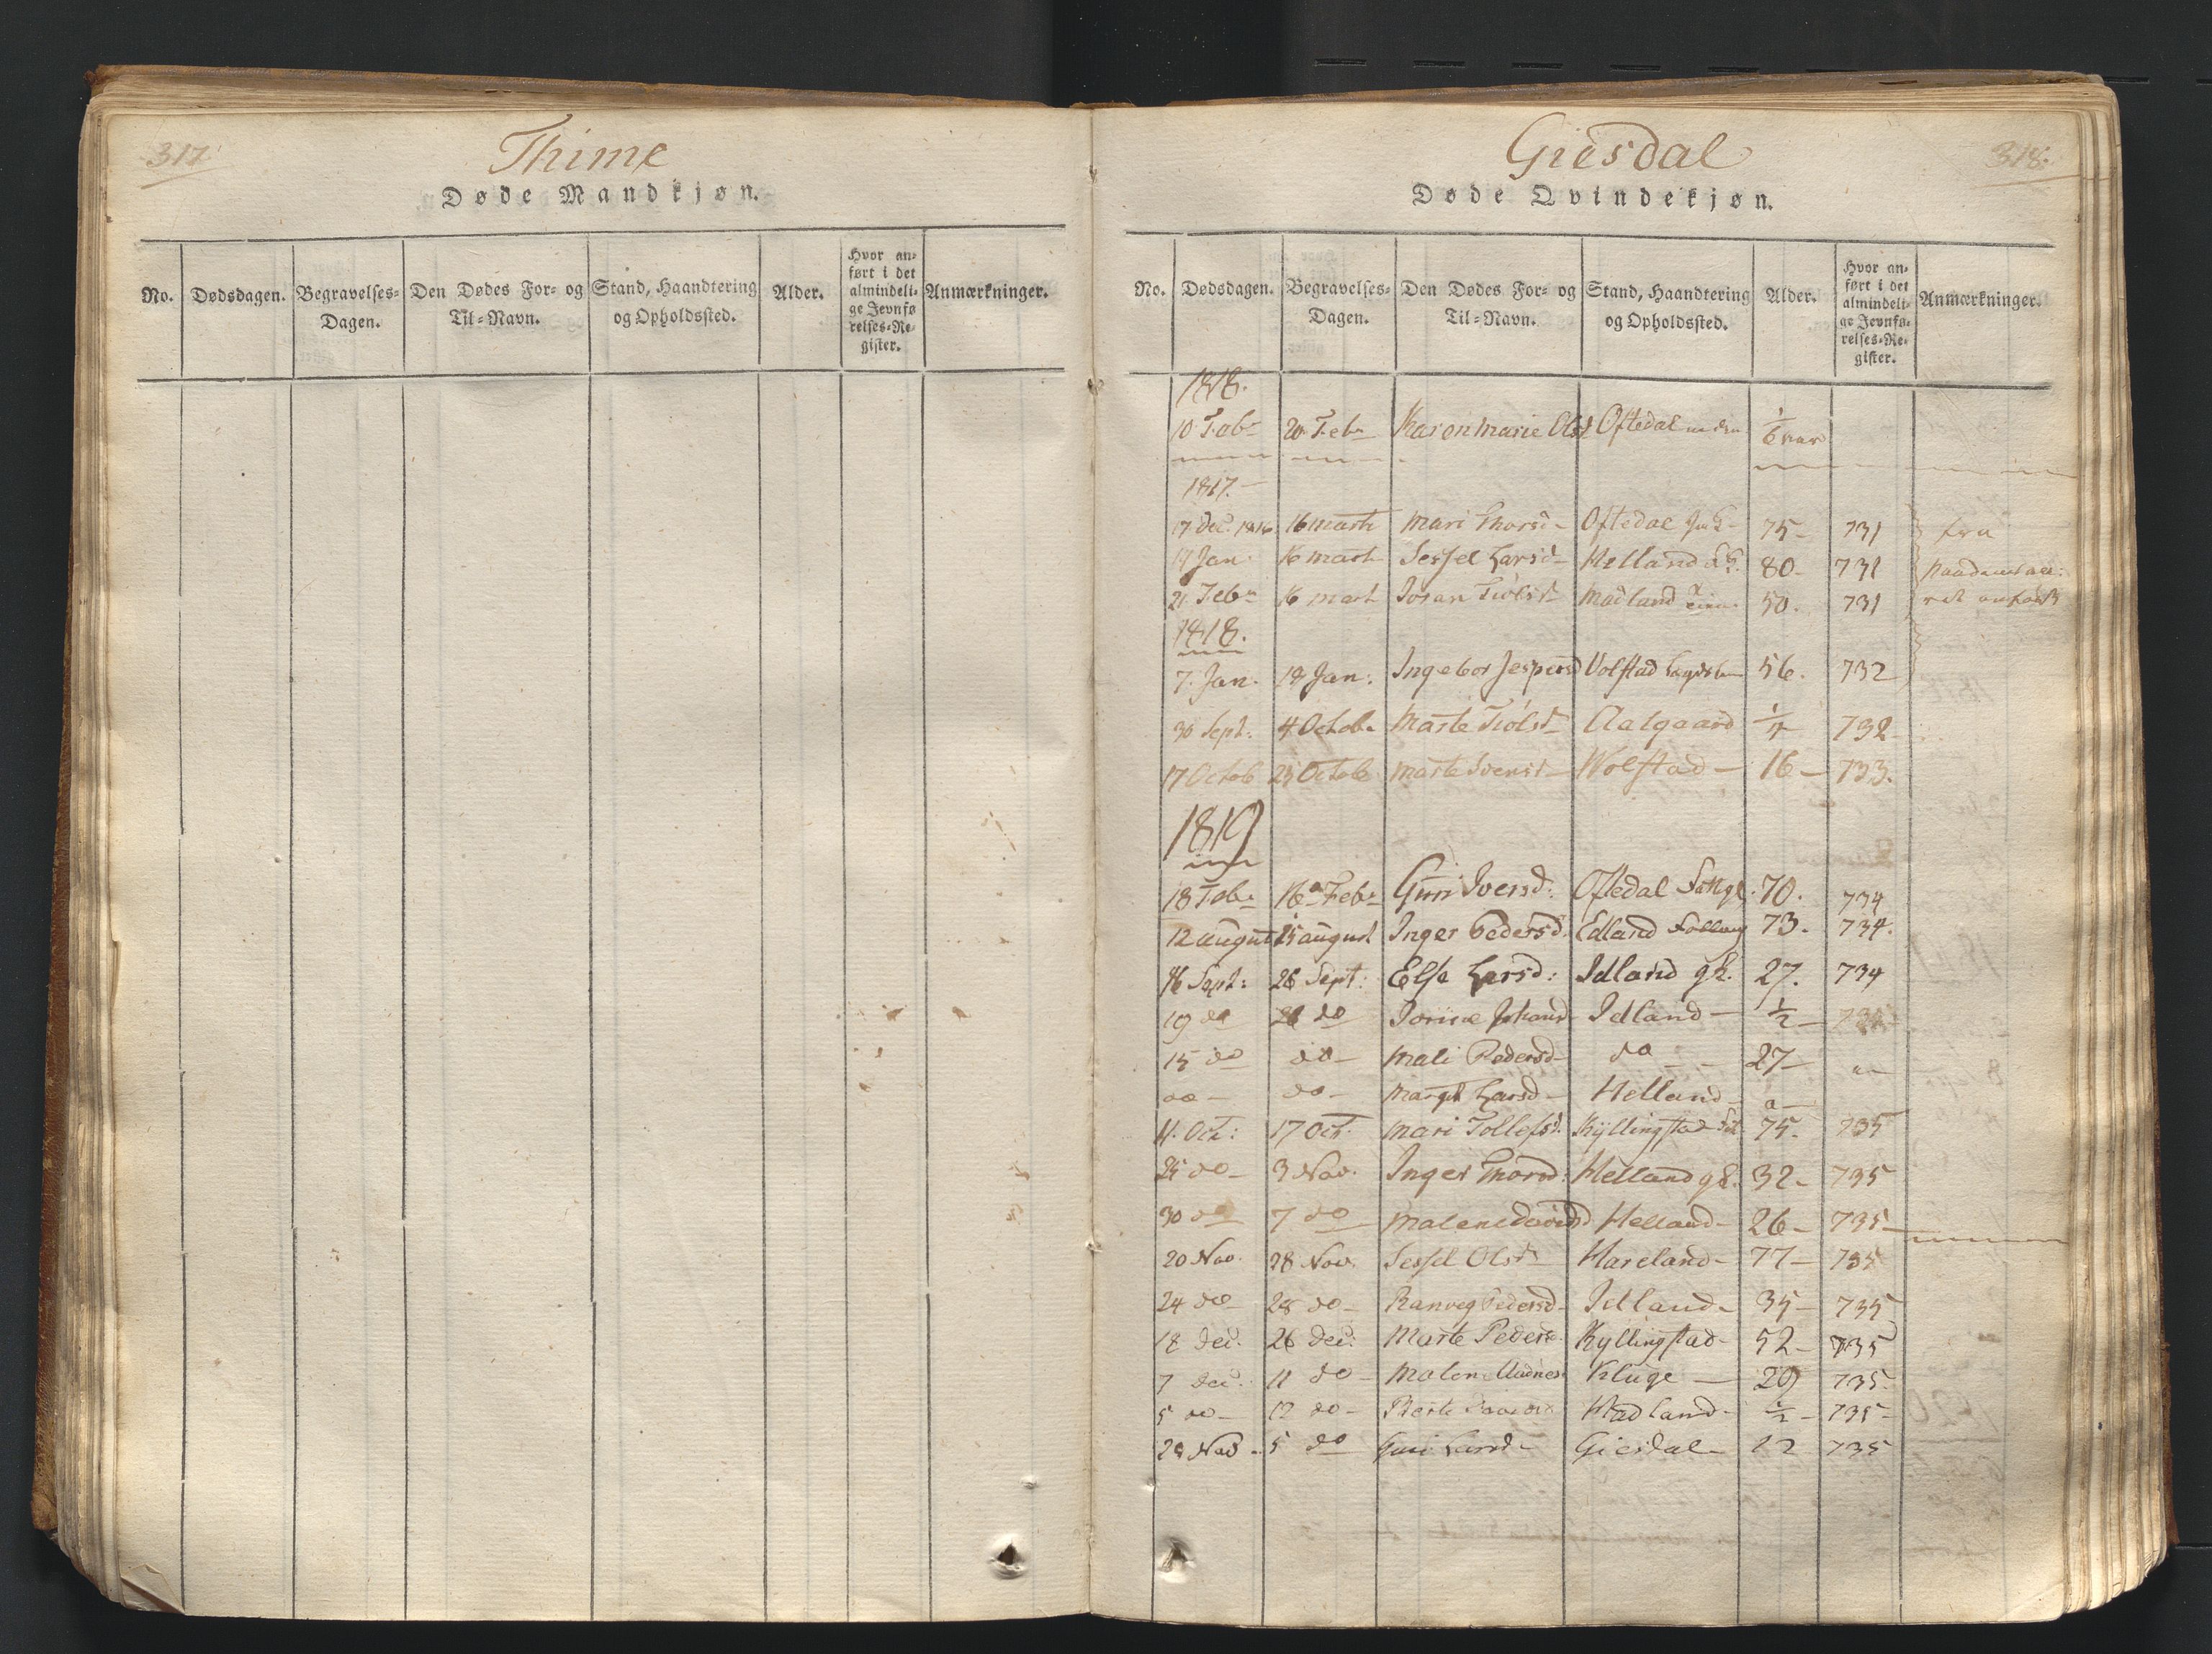 317
Thime
Døde Mandkjøn.
No. Dødsdagen. Begravelses-Dagen. Den Dødes For- og Til-Navn. Stand, Haandtering og Opholdssted. Alder. Hvor anført i det almindelige Jevnførelses-Register. Anmærkninger.
Giesdal
318.
Døde Qvindekjøn.
No. Dødsdagen. Begravelses-Dagen. Den Dødes For- og Til-Navn. Stand, Haandtering og Opholdssted. Alder. Hvor anført i det almindelige Jevnførelses-Register. Anmærkninger.
1818.
10 Febr 20 Febr Karen Marie Olsd Oftedal 1/6 aar
1817.
17 Dec. 1816 16 Marti Mari Thorsd Oftedal 75 731
17 Jan. 16 Marti Sessel Larsd Helland 80 731
21 Febr 16 Marti Josan Tiølsd Madland 50. 731
1818.
7. Jan. 18 Jan: Ingebor Jespersd Volstad 56. 732
30 Sept: 4 Octobr Marte Tiølsd Aalgaard 1/4 732
17 Octob 25 Octobr Marte Svensd Wolstad 16 733.
1819
18 Febr 16 Febr Guri Iversd: Oftedal 70. 734
12 august 15 august Inger Pedersd. Edland 73. 734.
16 Sept: 26 Sept: Else Larsd: Idland gk. 27. 734
19 do do Johansd Idland 1/2
15 do do Mali Pedersd do 27
do do Margt Larsd Helland
11. Oct: 17 Oct. Mari Tollefsd. Kyllingstad 75. 735
25 do 3 Nov. Inger Thorsd: Helland gk. 32 735
30 do 7 do Malene Helland 26 735
20 Nov. 28 Nov. Sessel Olsd Hareland 77 735
24 do 28 do Ranveg Pedersd Idland 35 735
18 Dec. 26 Dec: Marte Peders Kyllingstad 52 735
7 Dec. 11 do Malen Kluge 29 735.
5 do 12 do Berte Madland 1/2 735
29 Nov 5 do Guri Larsd Giesdal 12 735